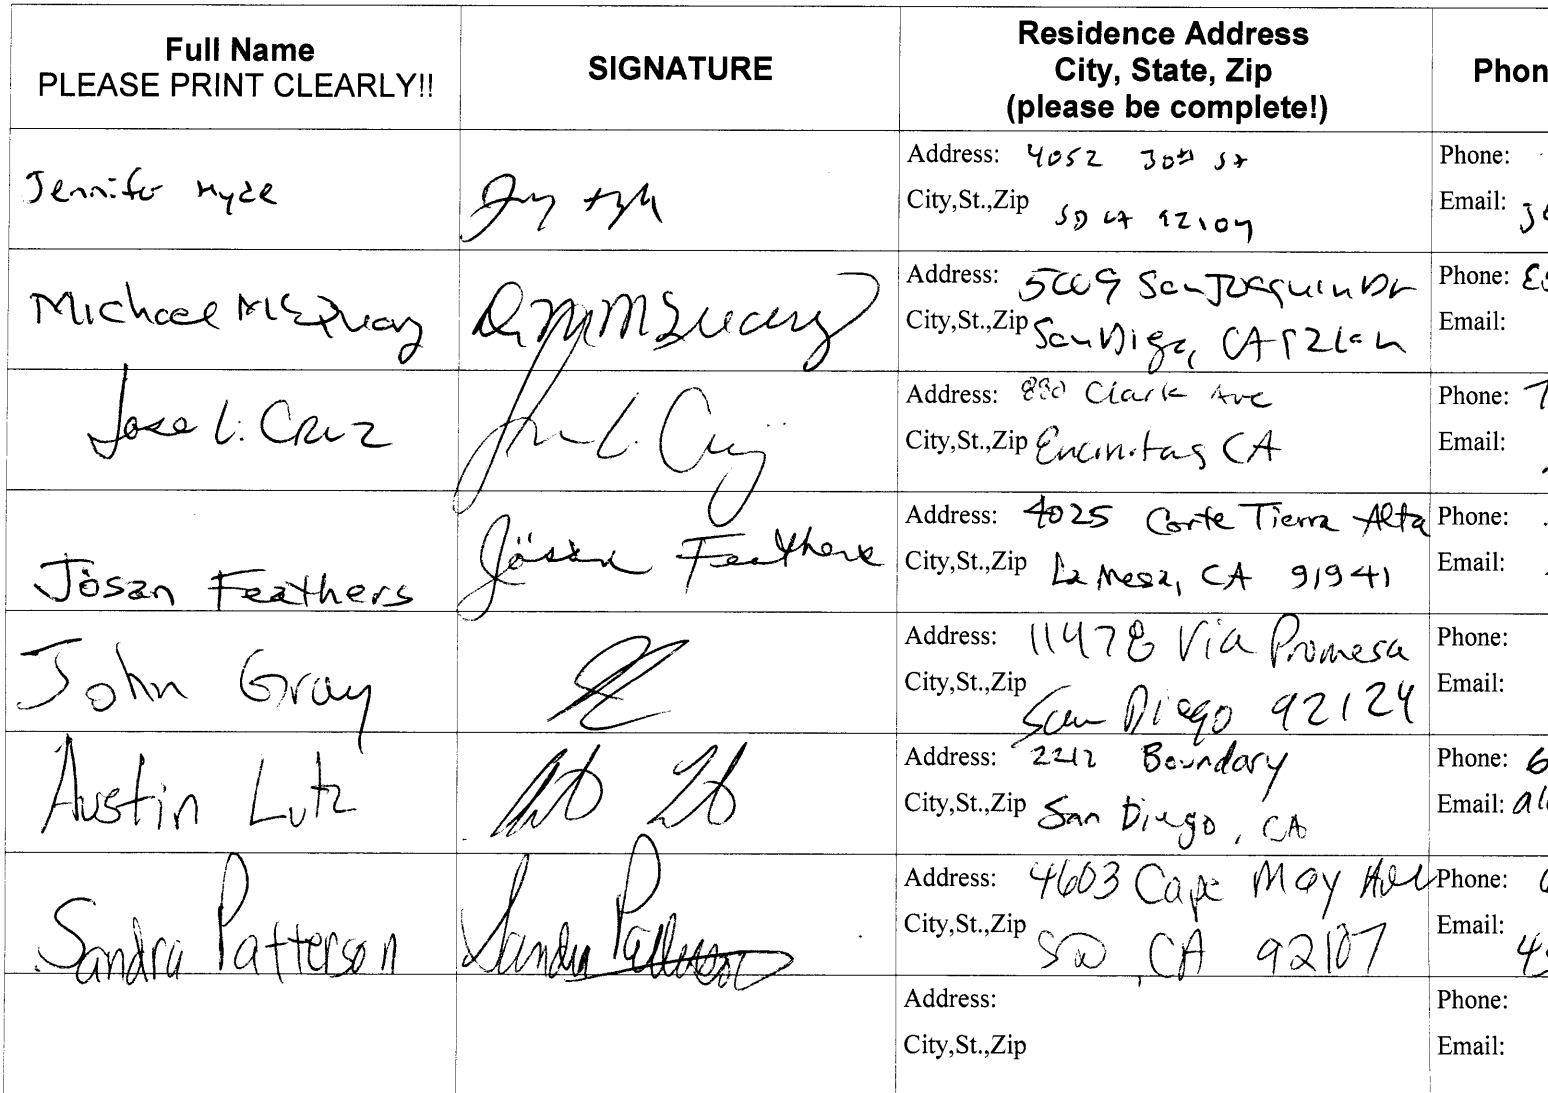 Full Name
PLEASE PRINT CLEARLY!!
SIGNATURE
Residence Address
City, State, Zip
(please be complete!)
Phon
Jennifer Hyde
Address: 4052 30th St
City,St.,Zip SD CA 92104
Phone:
Email:
Michael McQuary
Address: San Joaquin Dr
City,St.,Zip San Diego, CA
Phone:
Email:
Jose L. Cruz
Jose L. Cruz
Address: 880 Clark Ave
City,St.,Zip Encinitas CA
Phone: 7
Email:
Jösan Feathers
Jösan Feathers
Address: 4025 Corte Tierra Alta
City,St.,Zip La Mesa, CA 91941
Phone:
Email:
John Gray
Address: 11478 Via Promesa
City,St.,Zip San Diego 92124
Phone:
Email:
Austin Lutz
Address: 2212 Boundary
City,St.,Zip San Diego, CA
Phone: 6
Email:
Sandra Patterson
Sandra Patterson
Address: 4603 Cape May Ave
City,St.,Zip SD, CA 92107
Phone:
Email:
Address:
City,St.,Zip
Phone:
Email: